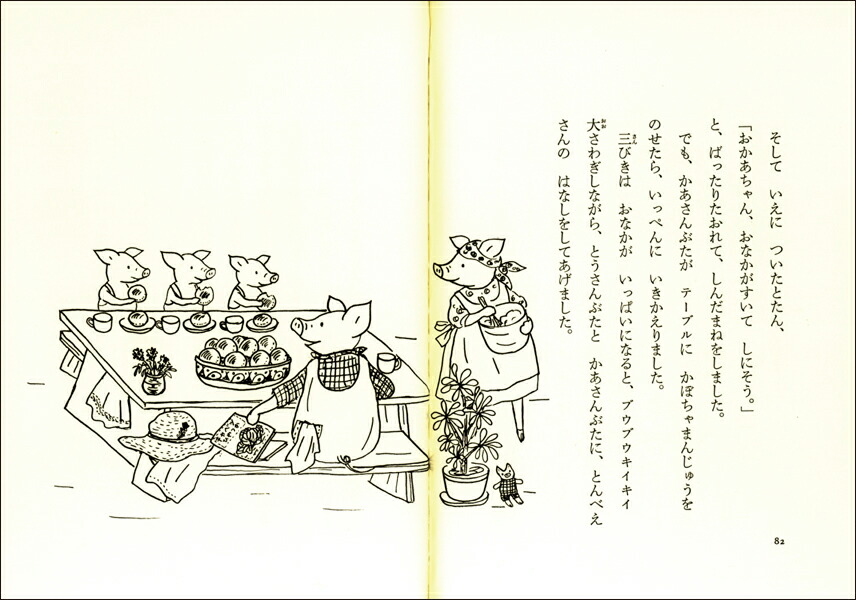 そして　いえに　ついたとたん、
「おかあちゃん、おなかがすいて　しにそう。」
と、ばったりたおれて、しんだまねをしました。
でも、かあさんぶたが　テーブルに　かぼちゃまんじゅうを
のせたら、いっぺんに　いきかえりました。
三びきは　おなかが　いっぱいになると、ブウブウキイキイ
大さわぎしながら、とうさんぶたと　かあさんぶたに、とんべえ
さんの　はなしをしてあげました。
82